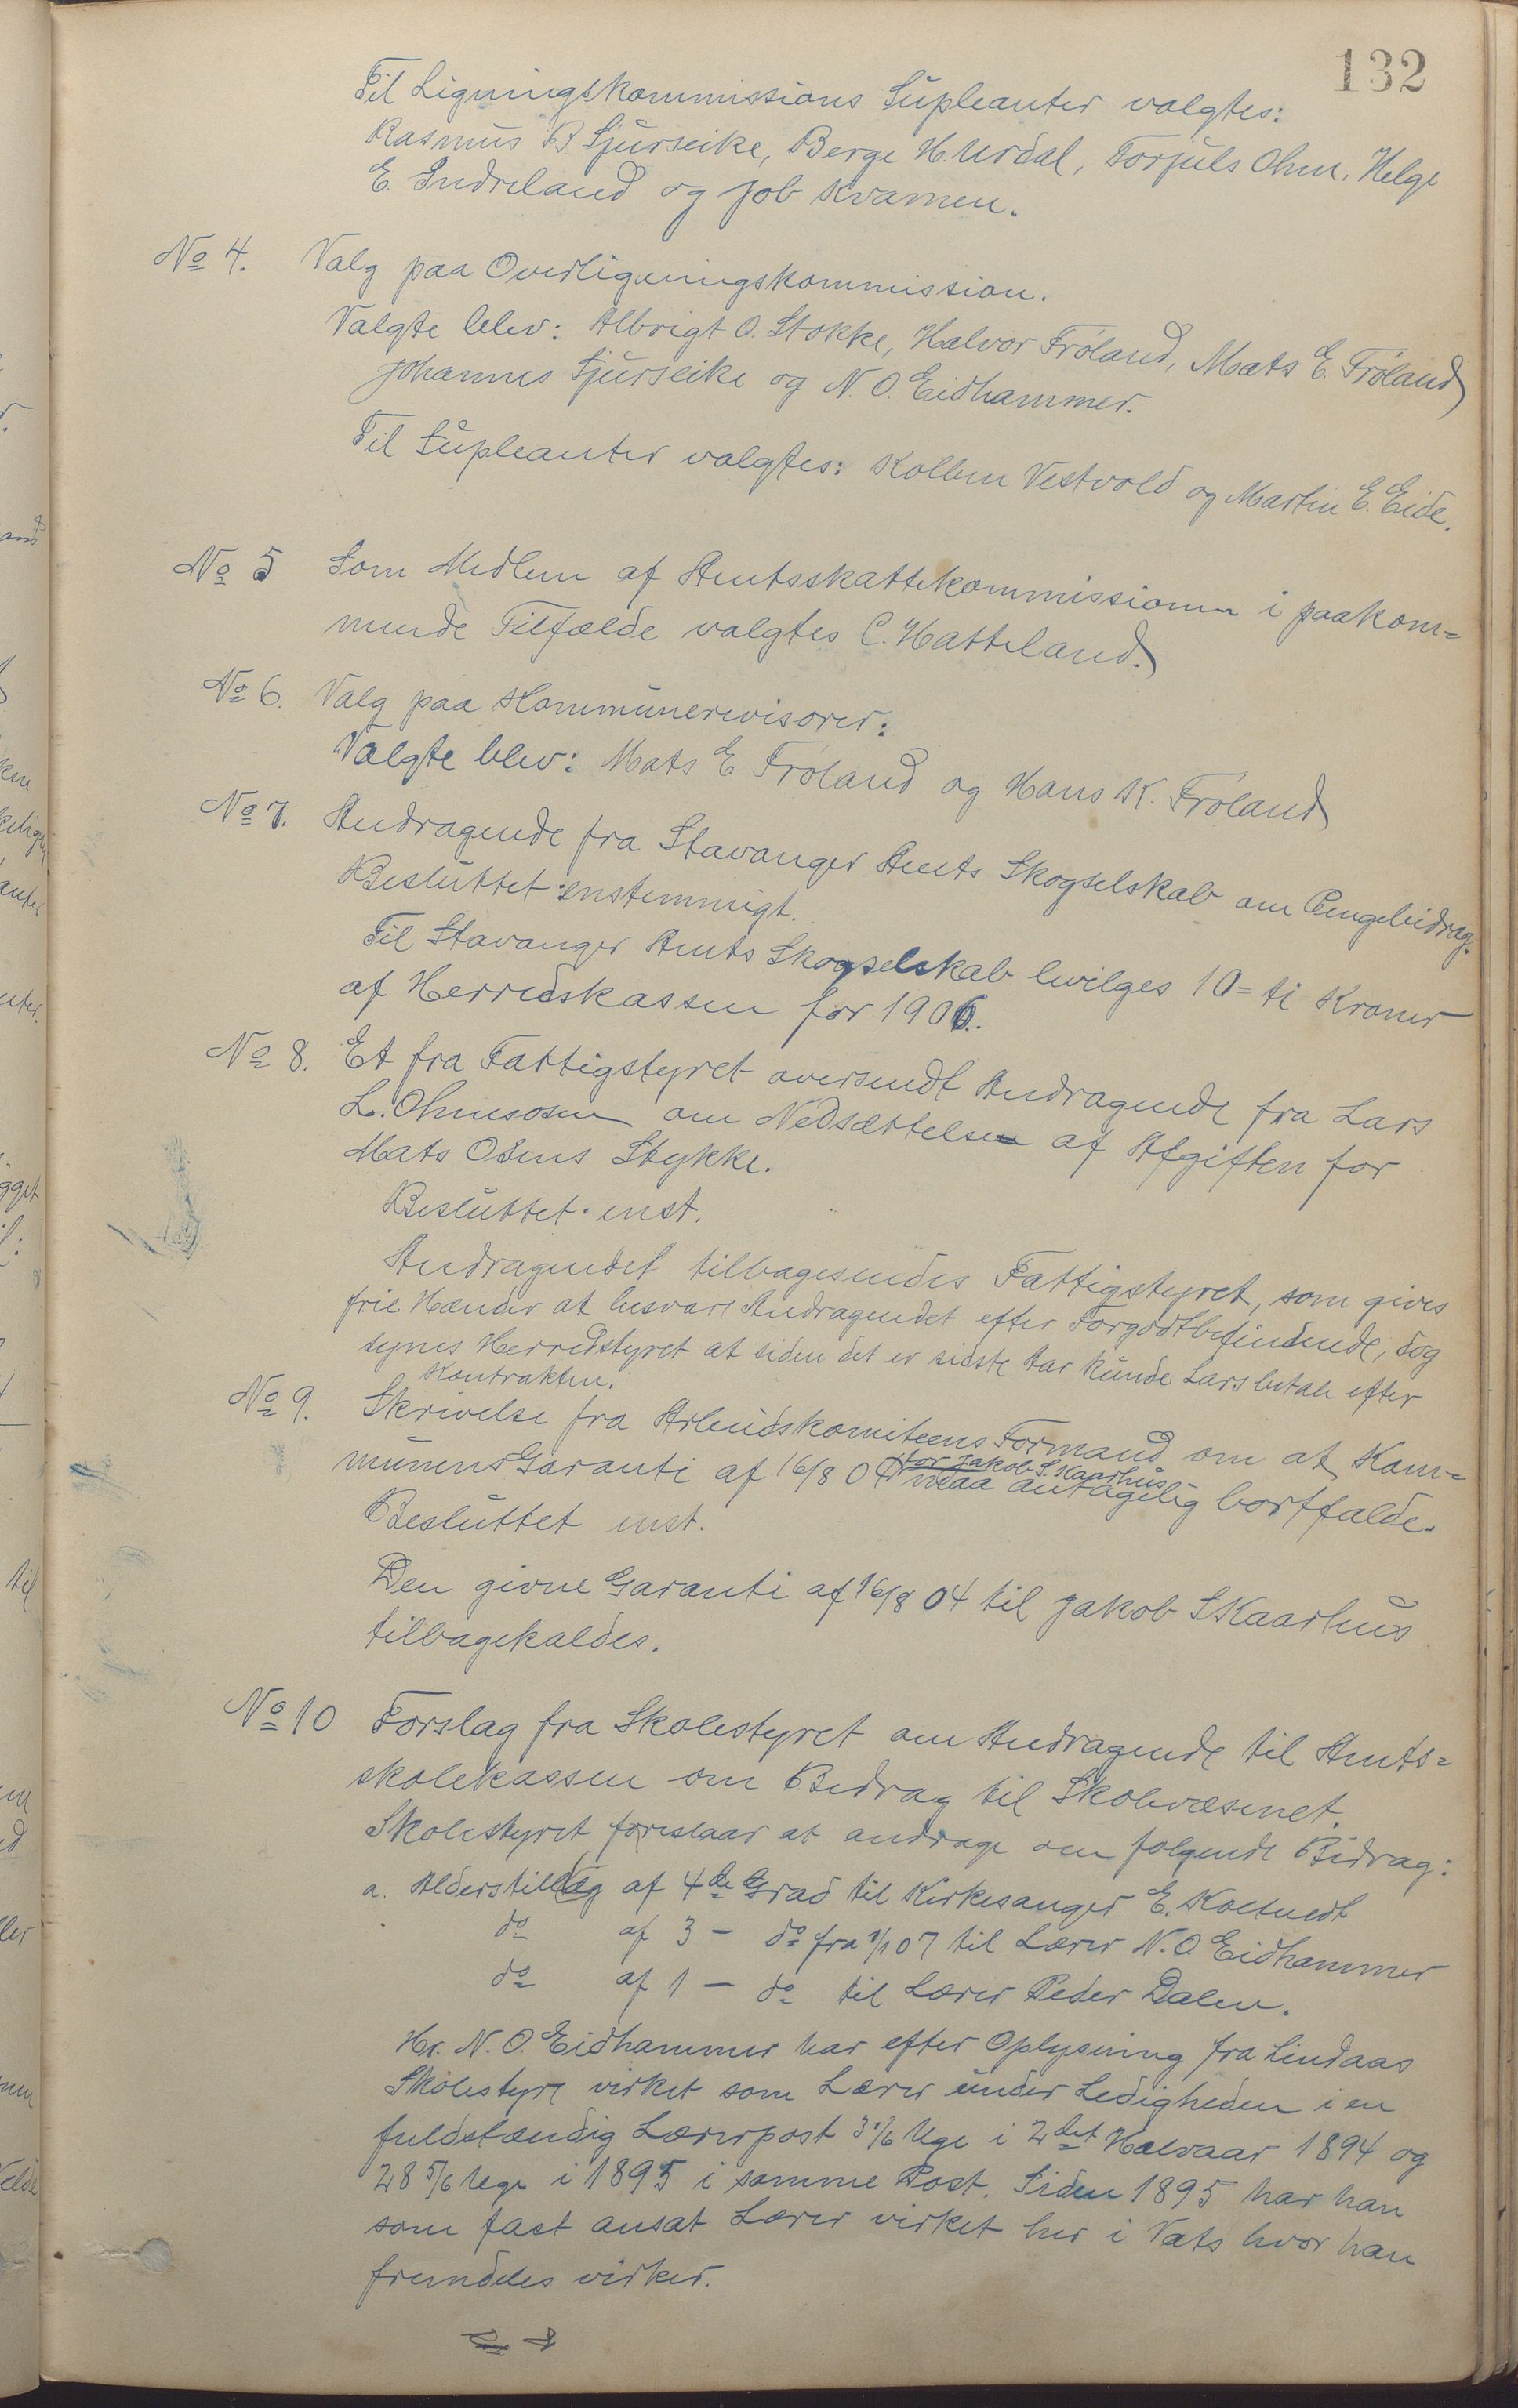 132
Til Ligningskommissions Supleanter valgtes:
Rasmus B. Sjurseike, Berge H. Urdal, Torjuls Ohm. Helge
E. Indreland og Job Kvamen.
No 4. Valg paa Overligningskommission.
Valgte blev: Albrigt O. Stokke, Halvor Frøland, Mats E. Frøland
Johannes Sjurseike og N. O. Eidhammer.
Til Supleanter valgtes: Kolben Vestvold og Martin E. Eide.
No 5 Som Medlem af Amtsskattekommissionen i paakom=
mende Tilfælde valgtes C. Hatteland.
No 6. Valg paa Kommunerevisorer:
Valgte blev: Mats E Frøland og Hans K. Frøland
No 7. Andragende fra Stavanger Amts Skogselskab om Pengebidrag.
Besluttet enstemmigt.
Til Stavanger Amts Skogselskab bevilges 10= ti Kroner
af Herredskassen for 1906.
No 8. Et fra Fattigstyret oversendt Andragende fra Lars
L. Ohmsosen om Nedsættelse af Afgiften for
Mats Osens Stykke.
Besluttet enst.
Andragendet tilbagesendes Fattigstyret, som gives
frie Hænder at besvare Andragendet efter Forgodtbefindende, dog
synes Herredstyret at siden det er sidste Aar kunde Lars betale efter
Kontrakten.
No 9. Skrivelse fra Arbeidskomiteens Formand om at Kom=
for Jakob S. Kaarhus
munens Garanti af 16/8 04 maa antagelig bortfalde.
Besluttet enst.
Den givne Garanti af 16/8 04 til Jakob S Kaarhus
tilbagekaldes.
No 10 Forslag fra Skolestyret om Andragende til Amts=
skolekassen om Bidrag til Skolevæsenet.
Skolestyret foreslaar at andrage om følgende Bidrag:
a. Alderstillæg af 4de Grad til Kirkesanger E. Koltvedt
do af 3 - do fra 1/1 07 til Lærer N. O. Eidhammer
do af 1 - do til Lærer Peder Dalen.
Hr. N. O. Eidhammer har efter Oplysning fra Lindaas
Skolestyre virket som Lærer under Ledigheden i en
fuldstændig Lærerpost 3 1/6 Uge i 2det Halvaar 1894 og
28 5/6 Uge i 1895 i samme Post. Siden 1895 har han
som fast ansat Lærer virket her i Vats hvor han
fremdeles virker.